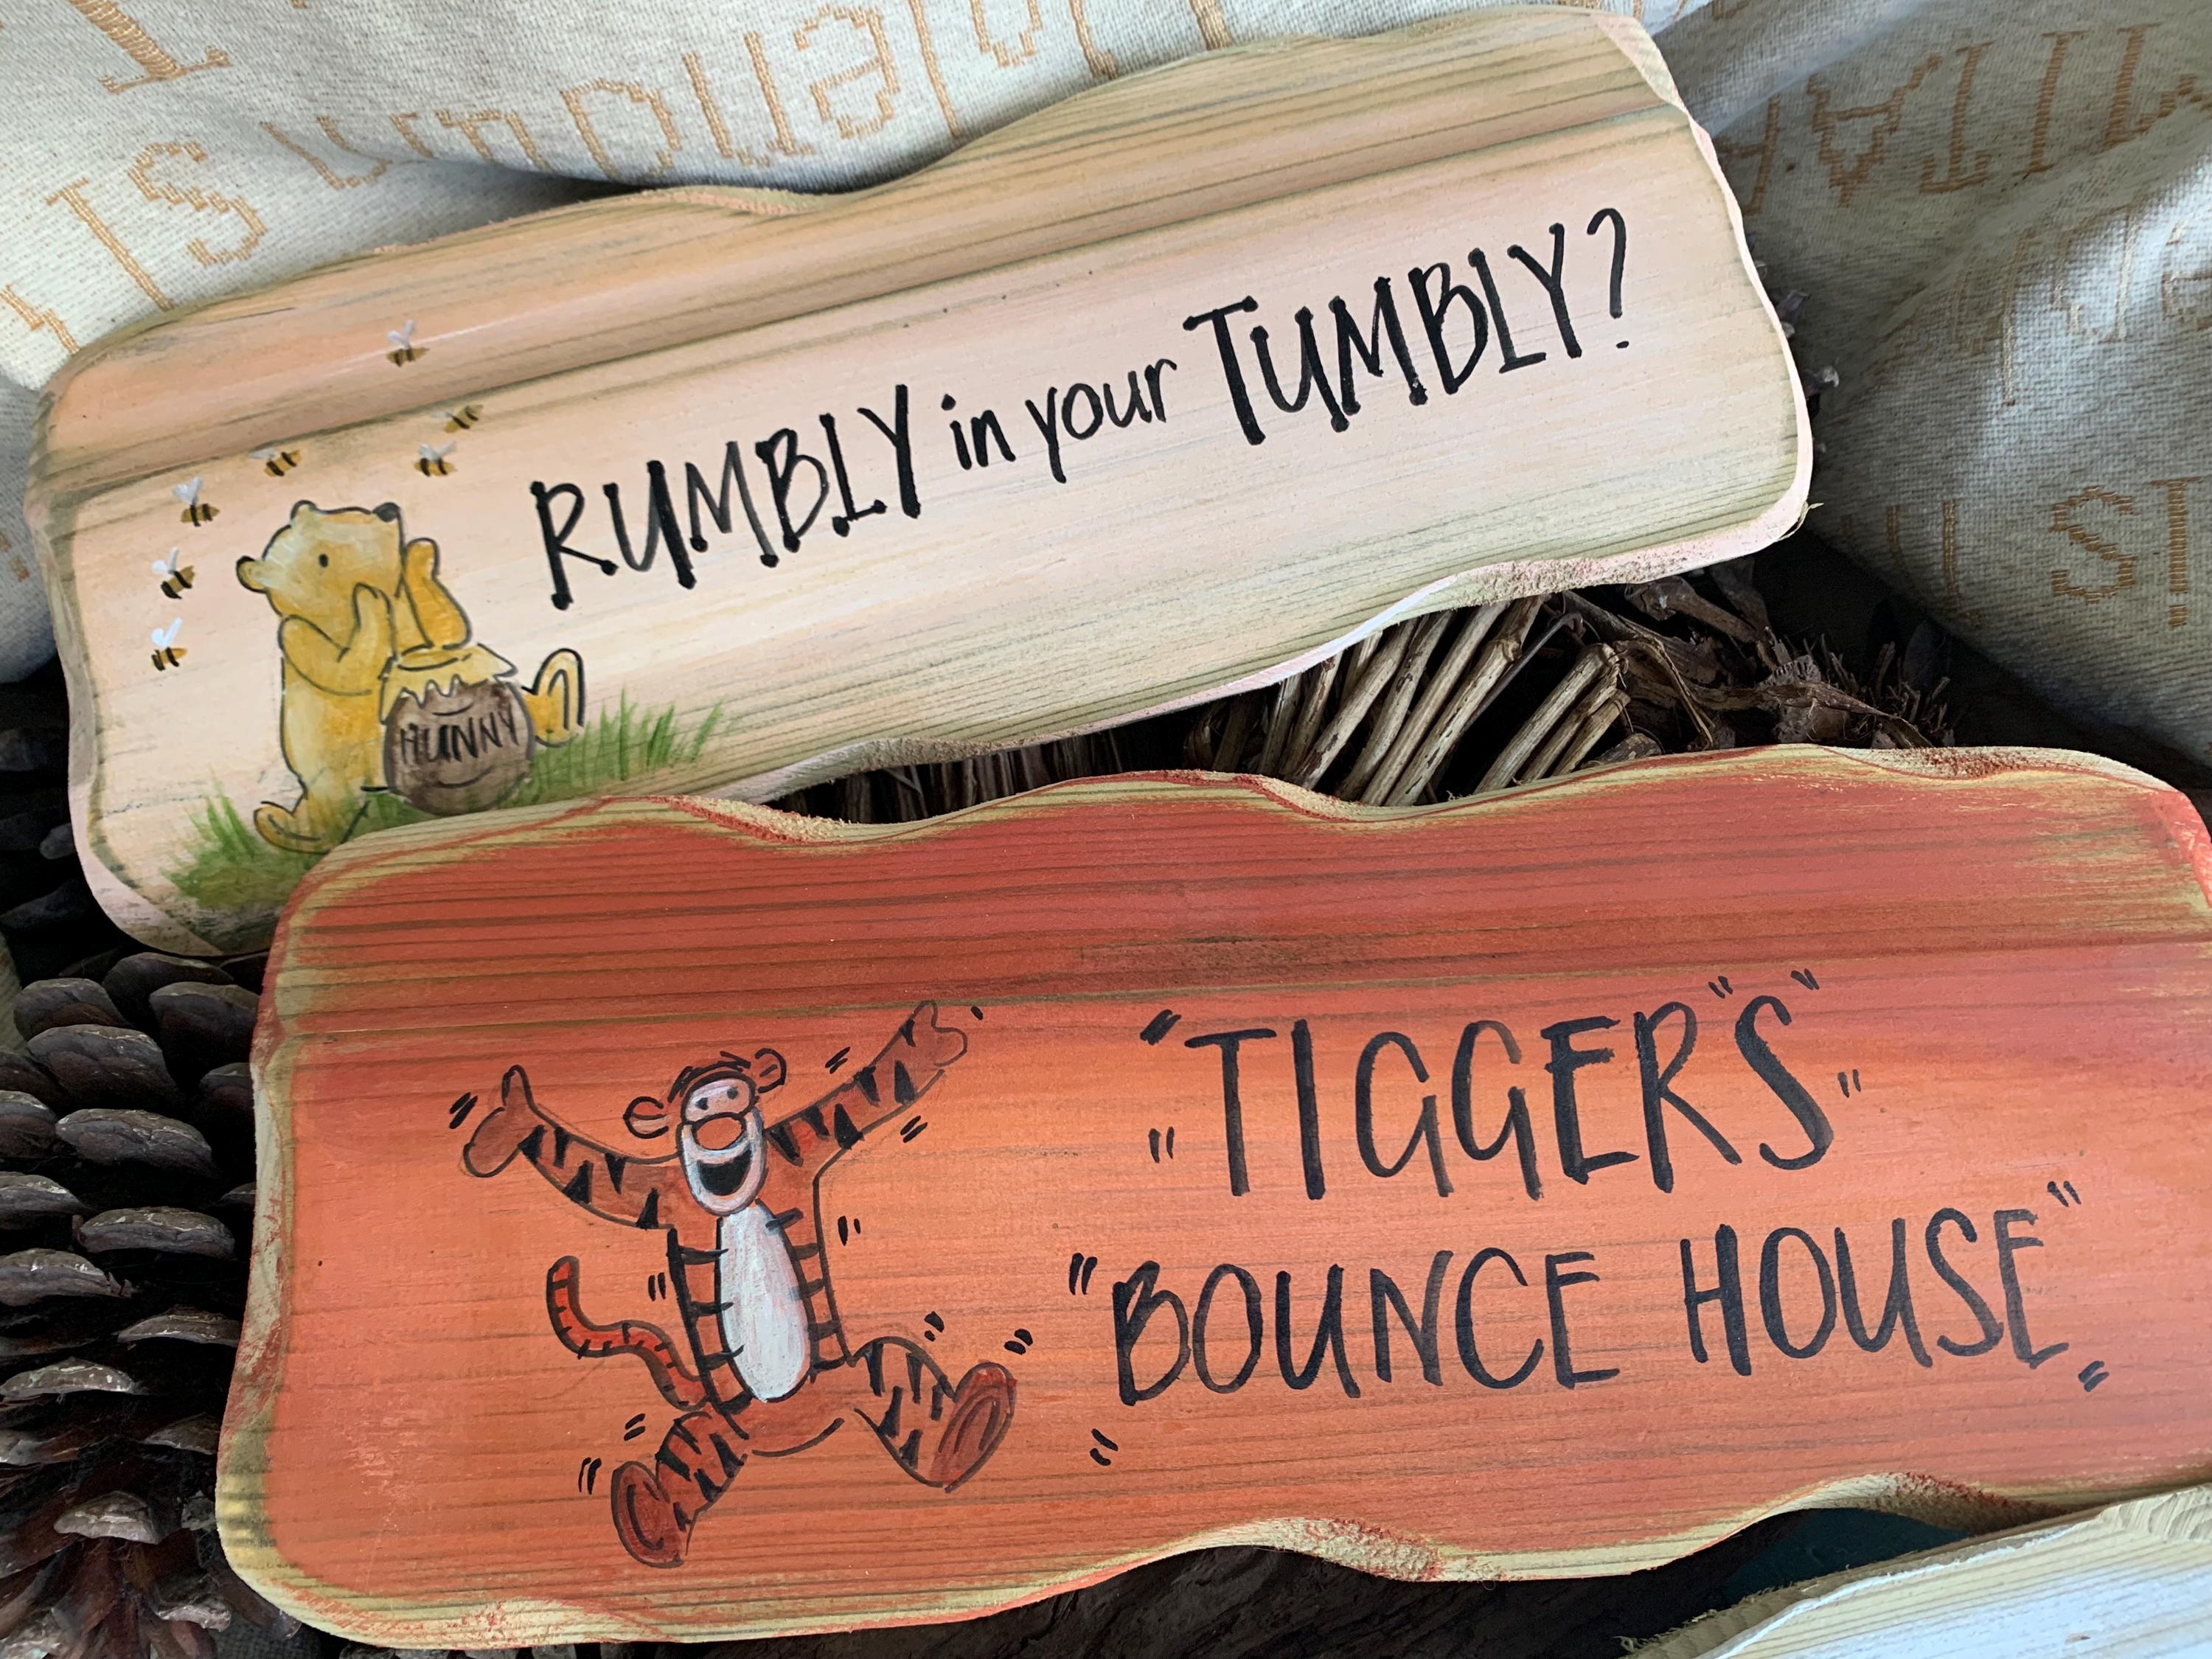 RUMBLY in your TUMBLY?
HUNNY
"TIGGER'S"
"BOUNCE HOUSE"